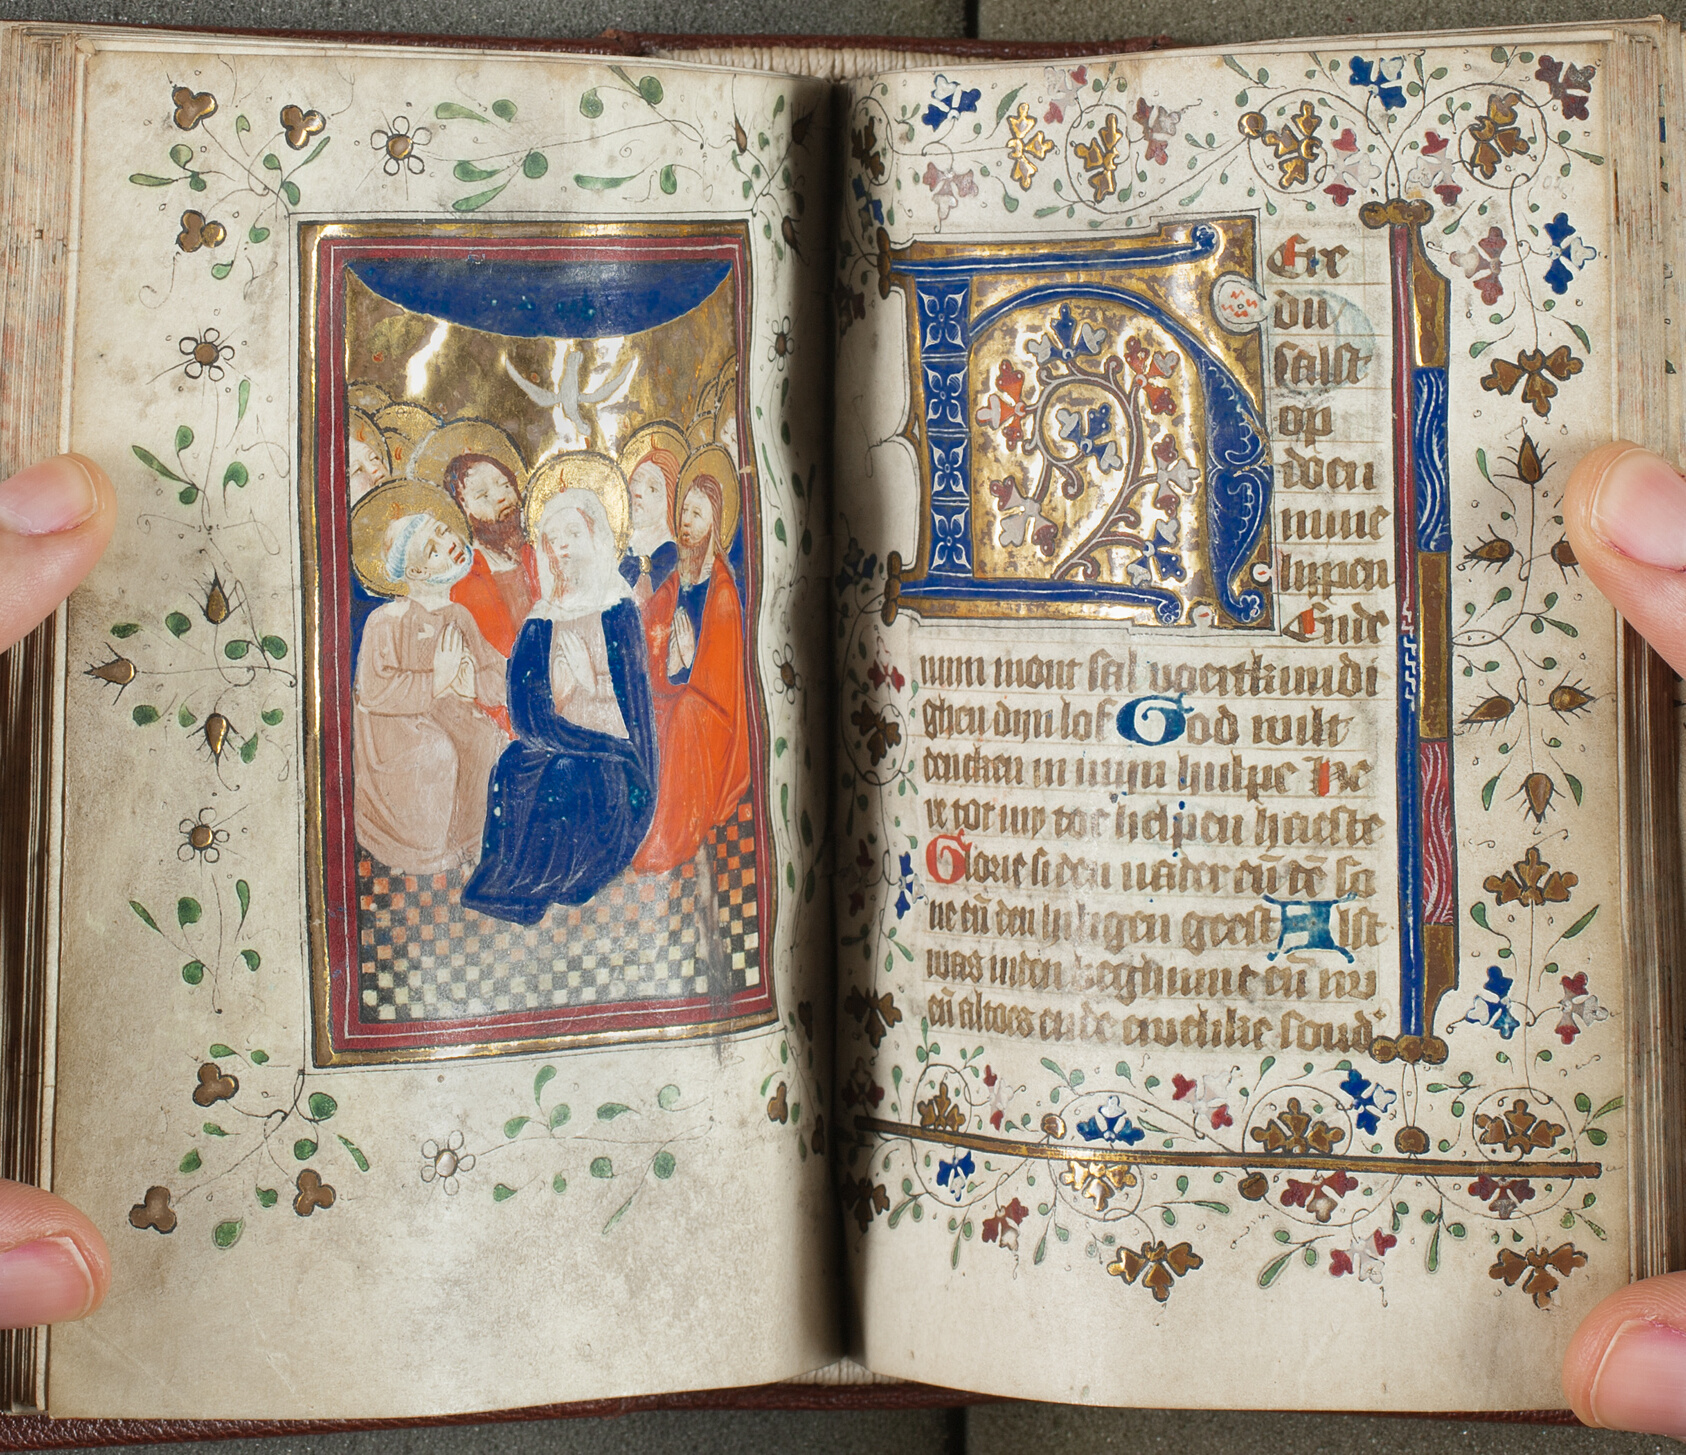 Here
du
salst
op
doen
mine
lippen
Ende
minn mont sal voertkundi
ghen dijn lof God wilt
dencken in mijn hulpe He
re tot my toe helpen haeste
Glorie si den vader en̄ tē so
ne en̄ den heilighen geest Alst
was inden beghinne en̄ nu
en̄ altoes ende ewelike sond